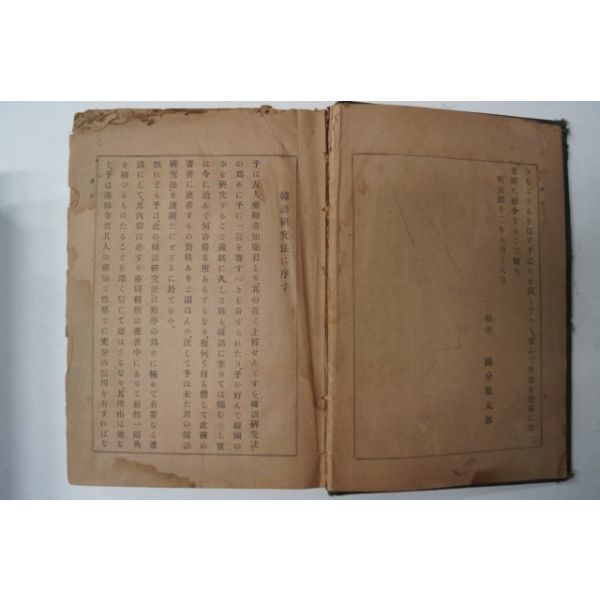 少なからざるを信じ予之れを
明治四十二年八月十八日
松亭 國分象太郎
韓語研究法に序す
予は友人藥師寺知朧君より、其の近く上梓せんとする韓語研究法
の爲めに予に一言を寄すべきを命ぜられたり、予や好んで韓國の
事を研究すること歳眂に久しと雖も韓語に至りては憫むべし
は今に迨んで何の得る所あらざるなり、何う自ら
著書に裏書するの資格ありと謂はんや、況して予は未だ君の韓語
研究法を通讀だにせざるに於てをや、
然れども予は、此の韓語研究法は斯學の爲めに極めて有益なる著
述にして、其內容は必ずや亦同種類の著書中にありて嶄然一頭角
を抽づるものたることを深く信じて疑はざるなり、其理由は他な
し予は藥師寺君其人の頭腦と性格とに充分の信用を有すればな